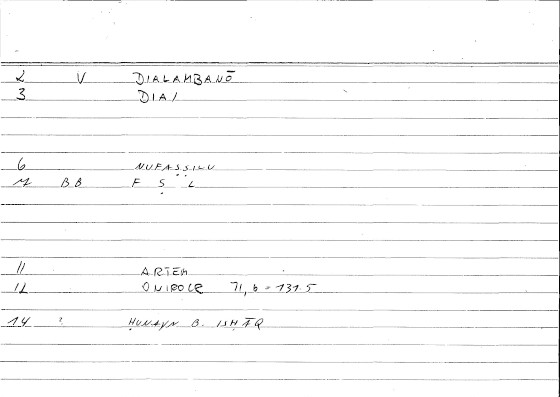 2 V DIALAMBANŌ
3 DIA/
6 NUFAṢṢILU
BB F Ṣ L
11 ARTEM
12 ONIROCR 71,6 = 131.5
14 ḤUNAYN B. ISḤĀQ